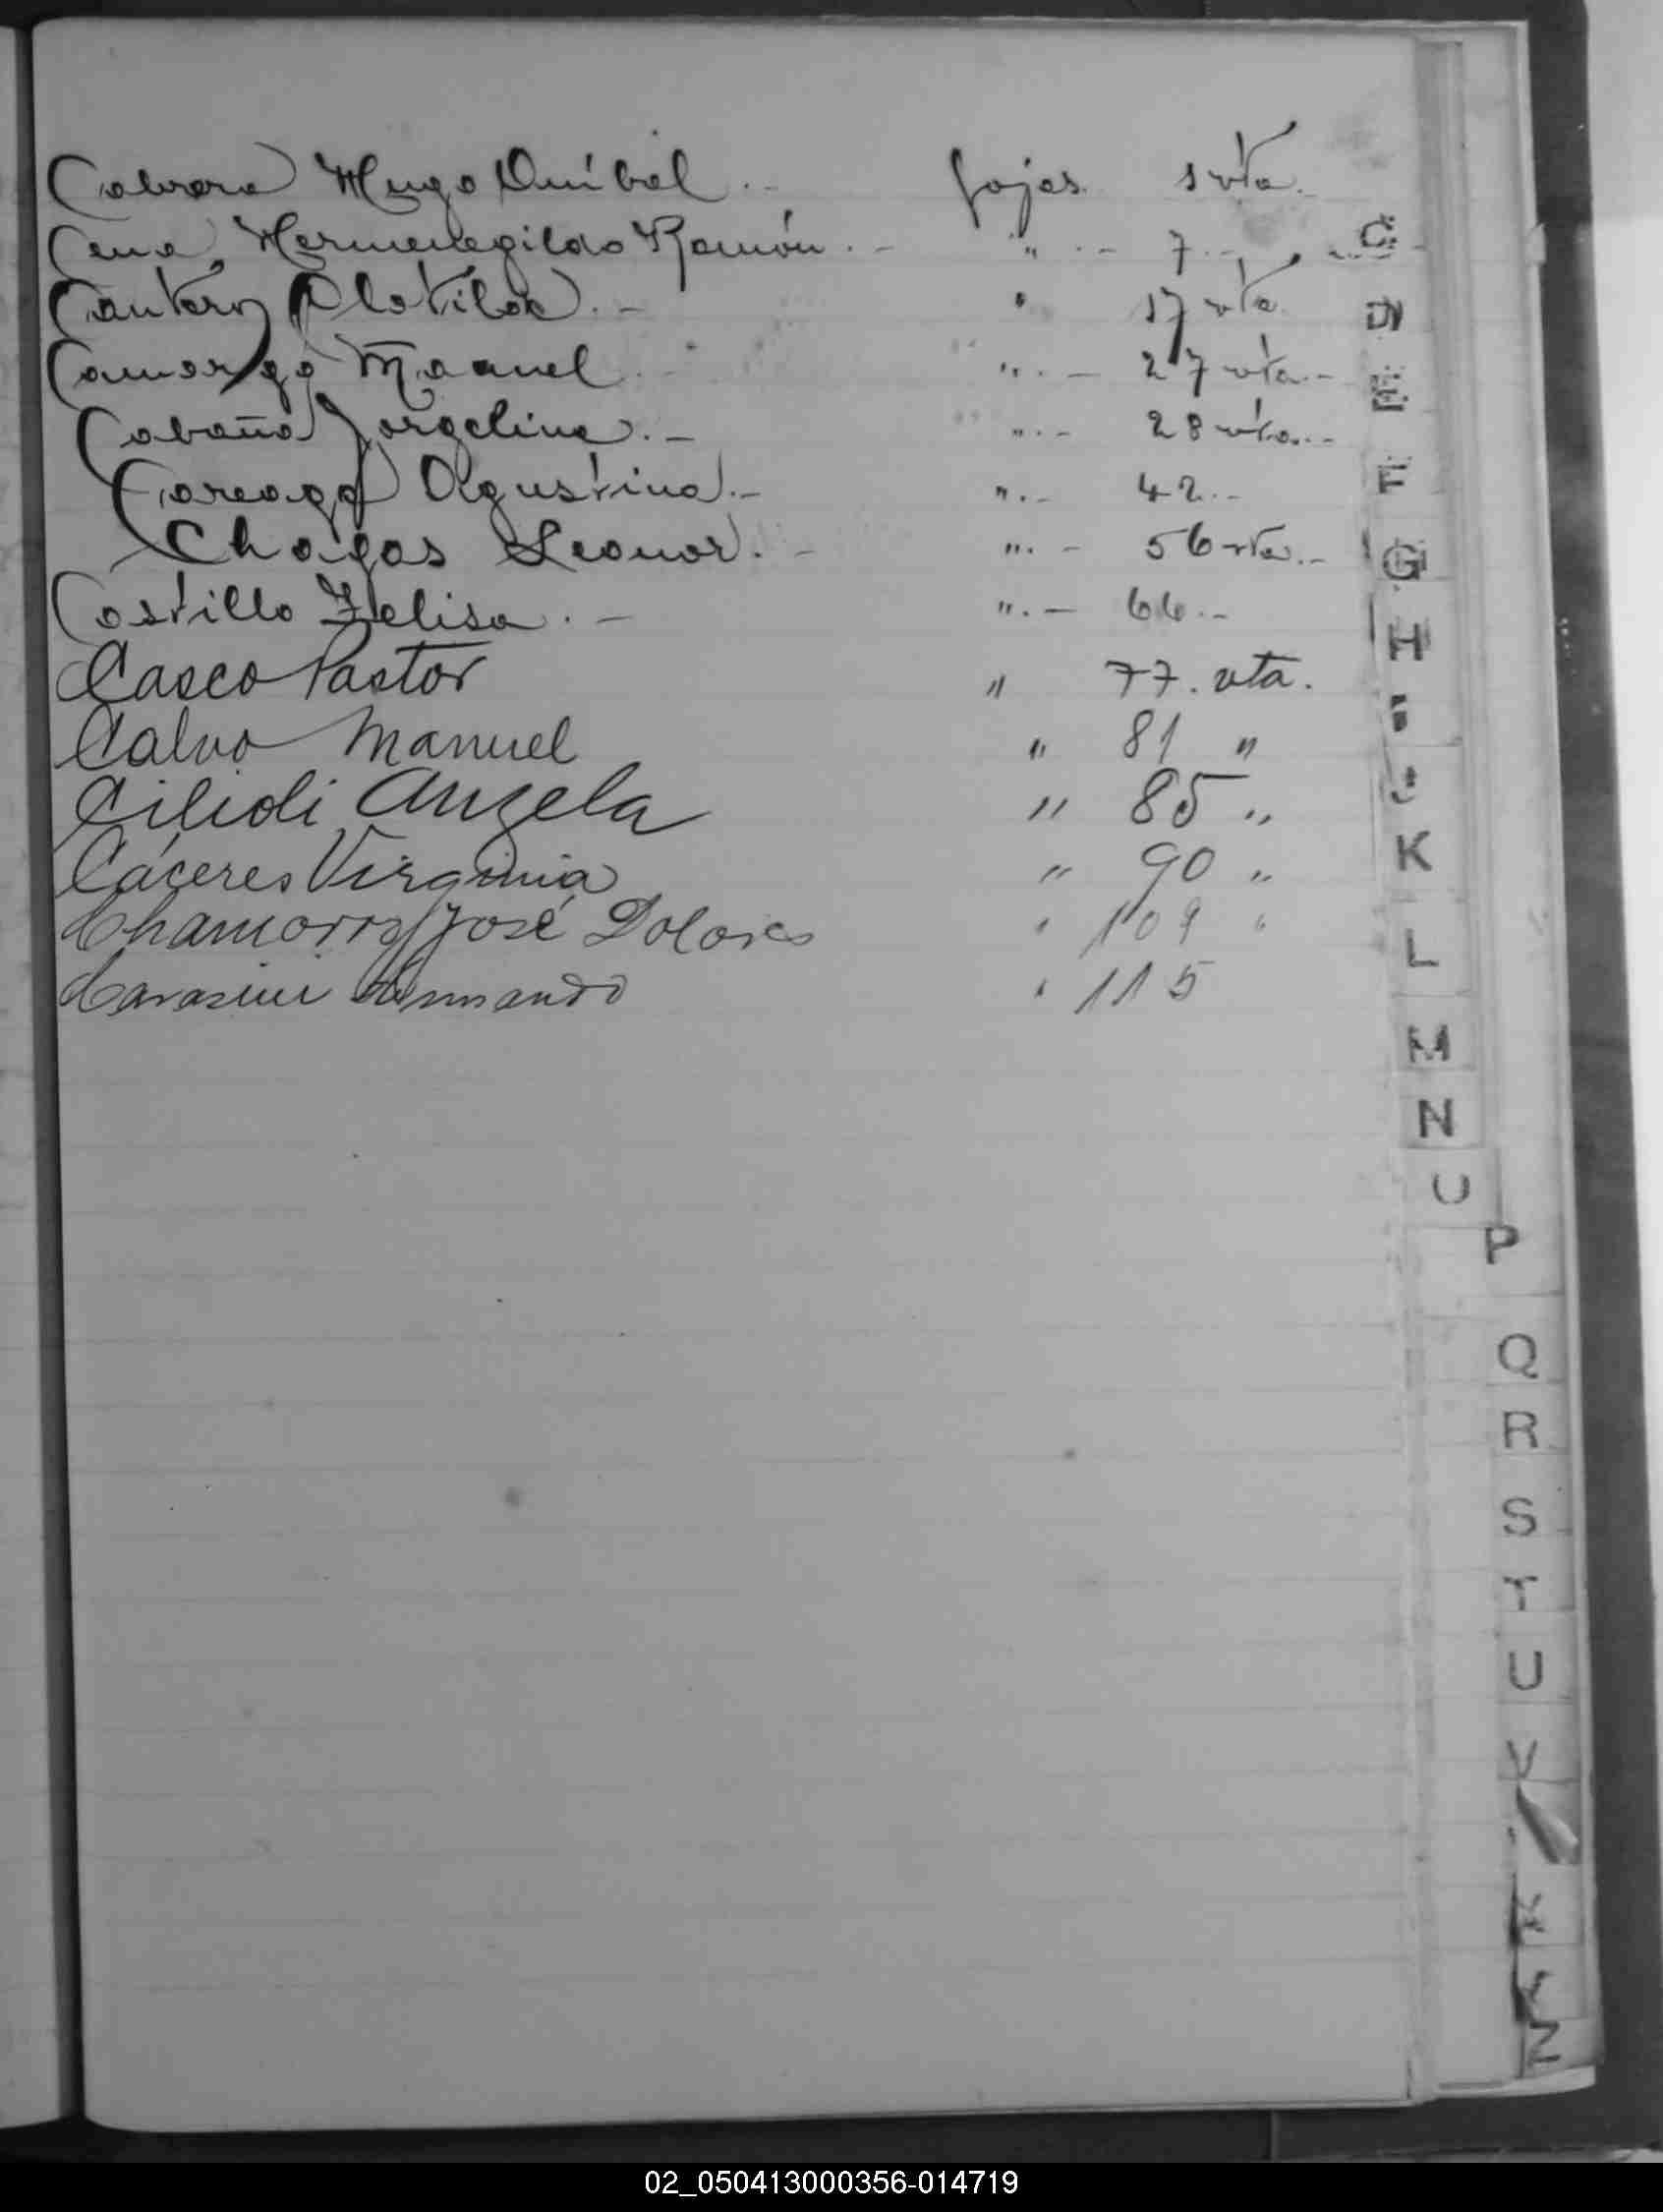 Cabrera Hugo Anibal .- fojas 1 vta.
Cena Hermenegildo Ramón .- " .- 7 .-
Cantero Clotilde .- " 17 vta
Camargo Manuel .- " .- 27 vta.-
Cabaña Jorgelina .- " .- 28 vta.-
Careaga Agustina .- " .- 42 .-
Chagas Leonor .- " .- 56 vta.-
Castillo Felisa .- " .- 66 .-
Casco Pastor " 77. vta.
Calvo Manuel " 81 "
Cilidi Angela " 85 "
Cáceres Virginia " 90 "
Chamorro José Dolores " 109 "
Armando " 115
C
D
E
F
G
H
I
J
K
L
M
N
O
P
Q
R
S
T
U
V
Y
Z
02_050413000356-014719